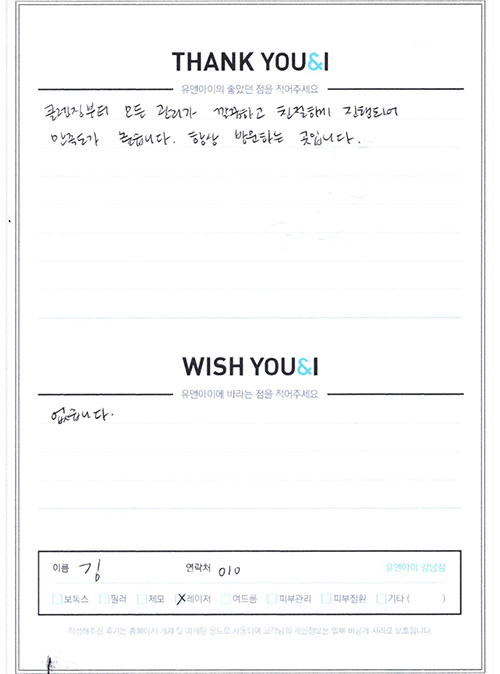 THANK YOU&I
유앤아이의 좋았던 점을 적어주세요
클렌징부터 모든 관리가 깔끔하고 친절하게 진행되어
만족도가 높습니다. 항상 방문하는 곳입니다.
WISH YOU&I
유앤아이에 바라는 점을 적어주세요
없습니다.
이름 김 연락처 010 유앤아이 강남점
보톡스 필러 제모 레이저 여드름 피부관리 피부질환 기타 ( )
작성해주신 후기는 홈페이지 게재 및 마케팅 용도로 사용되며 고객님의 개인정보는 일부 비공개 처리로 보호됩니다.